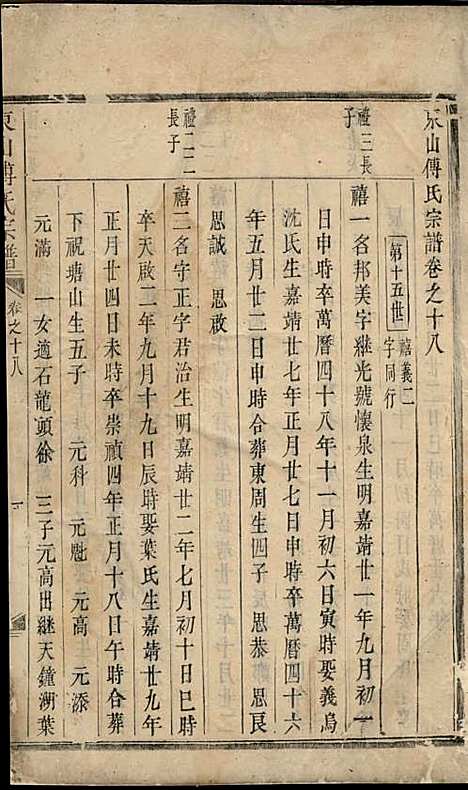 東山傅氏宗譜卷之十八
第十五世
禧義二
字同行
禮三長
子
禧一名邦美字継光號懷泉生明嘉靖廿一年九月初一
日申時卒萬曆四十八年十一月初六日寅時娶義烏
沈氏生嘉靖廿七年正月廿七日申時卒萬曆三十六
年五月廿二日申時合葬東周生四子 思恭 思良
思誠 思敢
禮二二
長子
禧二名字正字君治生明嘉靖廿二年七月初十日巳時
卒天啟二年九月十九日辰時娶葉氏生嘉靖廿九年
正月廿四日未時卒崇禎四年正月十八日午時合葬
下祝塘山生五子 元科 元魁 元高 元添
元滿 一女適石龍頭徐 三子元高出継天鐘湖葉
東山傅氏宗譜
卷之十八
一